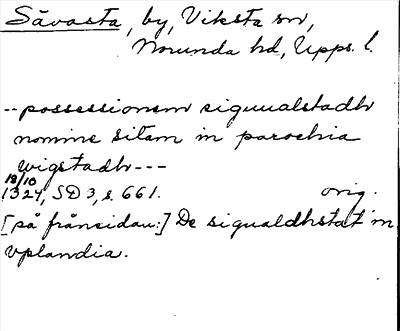 Sävasta, by, Viksta sn,
Norunda hd, Upps. l.
-- possessionem siguualstadhr
nomine sitam in parochia
wigstadhr ---
18/10
1324, SD 3, s. 661. orig.
[på frånsidan:] De sigualdhstat in
vplandia.